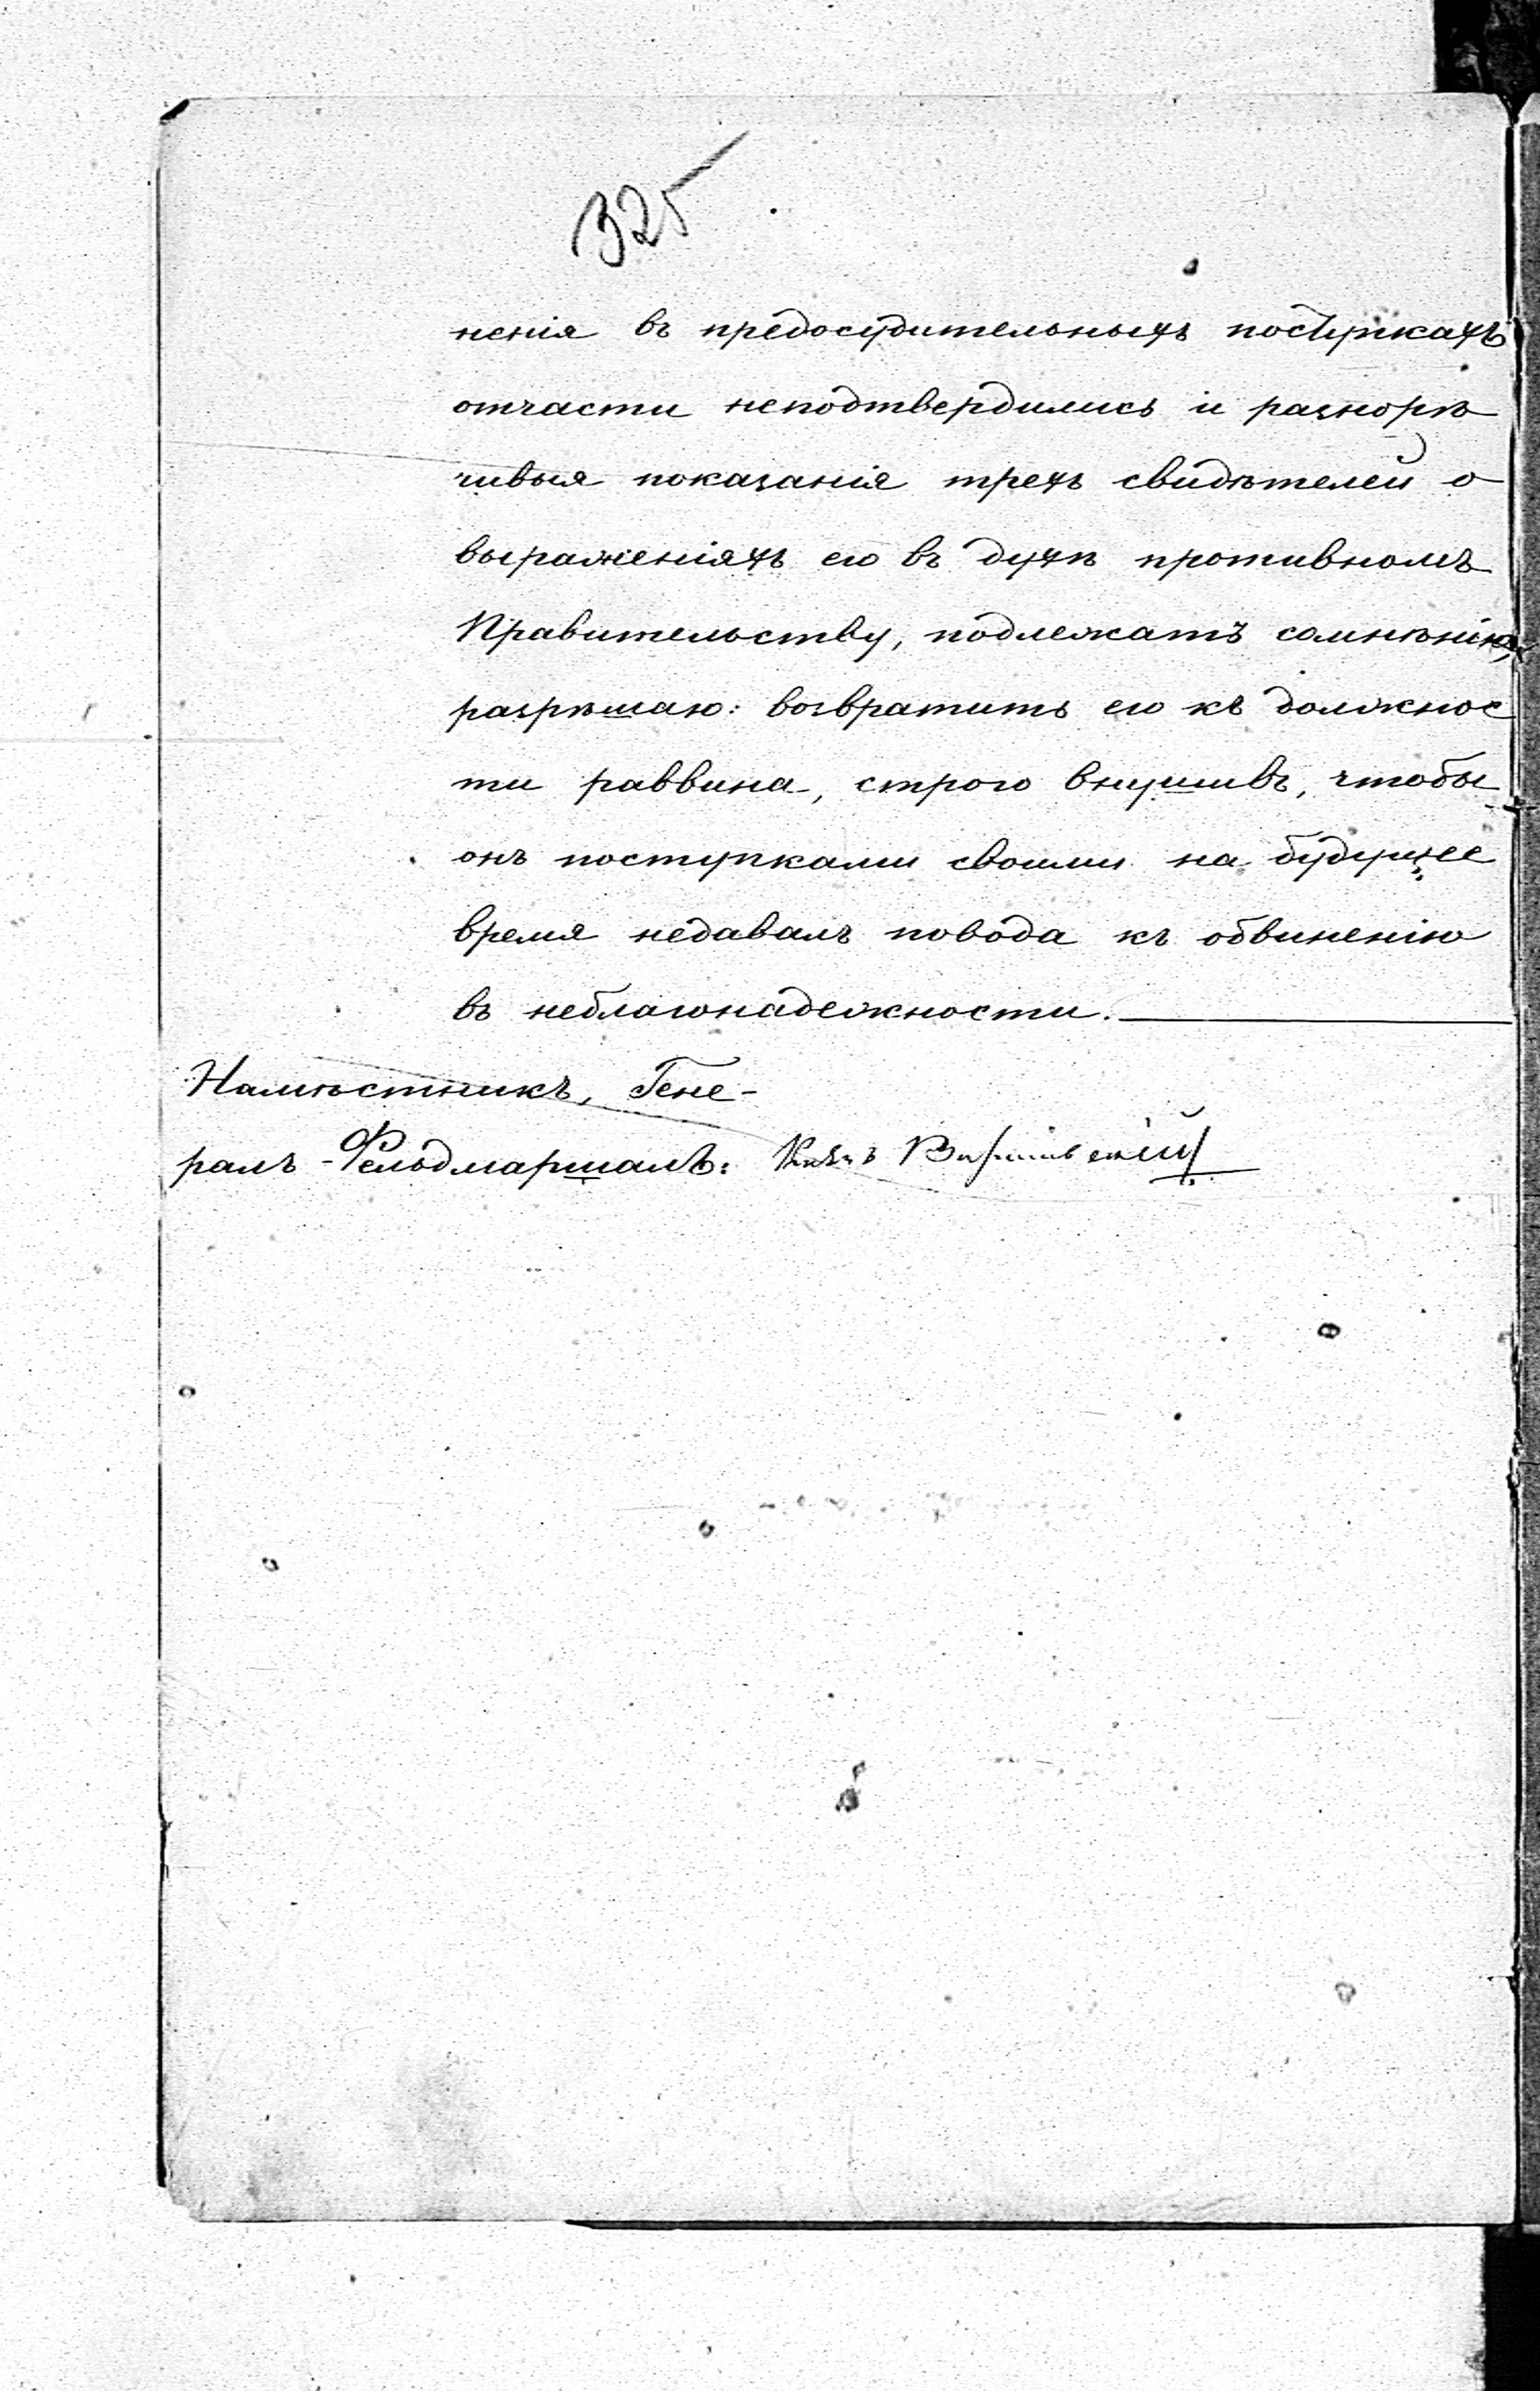 325
ненія въ предосудительныхъ поступкахъ
отчасти неподтвердились и разнорѣ
чивыя показанія трехъ свидѣтелей о
выраженіяхъ его въ духѣ противномъ
Правительству, подлежатъ сомнѣнію,
разрѣшаю: возвратить его къ должнос
ти раввина, строго внушивъ, чтобы
онъ поступками своими на будущее
время недавалъ повода къ обвиненію
въ неблагонадежности.
Намѣстникъ, Гене-
ралъ-Фельдмаршалъ: Князь Варшавскій